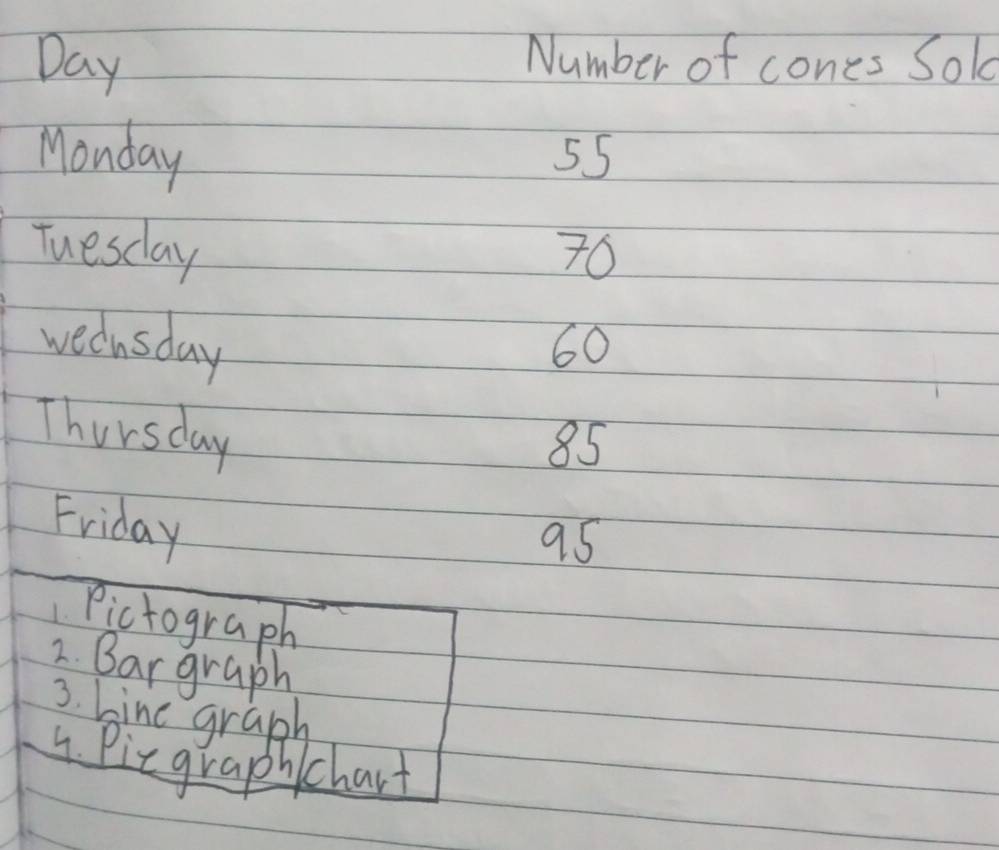 Day Number of cones Sold
Monday 55
Tuesday 70
wednsday 60
Thursday 85
Friday 95
1. Pictograph
2. Bar graph
3. Line graph
4. Pie graph/chart